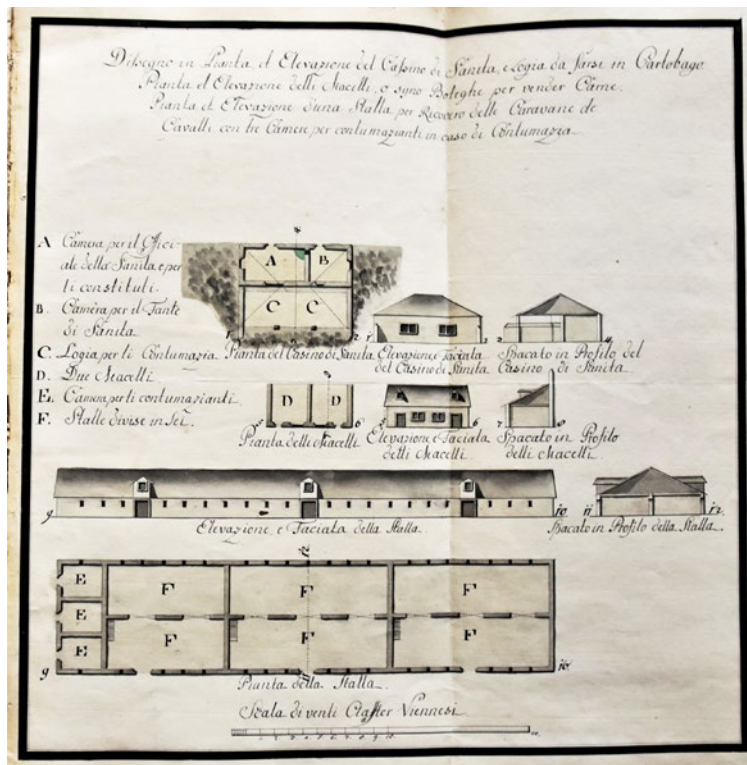 Dissegno in Pianta, et Elevazione del Cassino di Sanita, e Logia da Farsi in Carlobago
Pianta et Elevazione delli Macelli, o syno Boteghe per vender Carne.
Pianta et Elevazione d'una Stalla per Ricovero delle Caravane de
Cavalli con tre Camere per contumazianti in caso di Contumazia.
A Camera per il Offici-
ale della Sanita, e per
li constituti.
B. Camera per il Fante
di Sanita
C. Logia per ti Contumazia.
D. Due Macelli
E. Camera per ti contumazianti.
F. Stalle divise in Sei.
A B
C C
1 2
Pianta del Casino di Sanita.
1 2
Elevazione, e Faciata
del Casino di Sanita.
Spacato in Profilo del
Casino di Sanita.
D D
6
Pianta delli Macelli
6
Elevazione e Faciata
delli Macelli.
7 8
Spacato in Profilo
delli Macelli.
9 10
Elevazione, e Faciata della Stalla.
11 12
Spacato in Profilo della Stalla.
12
E F F F
E
E F F F
9 11 10
Pianta della Stalla.
Scala di venti Clafter Viennesi